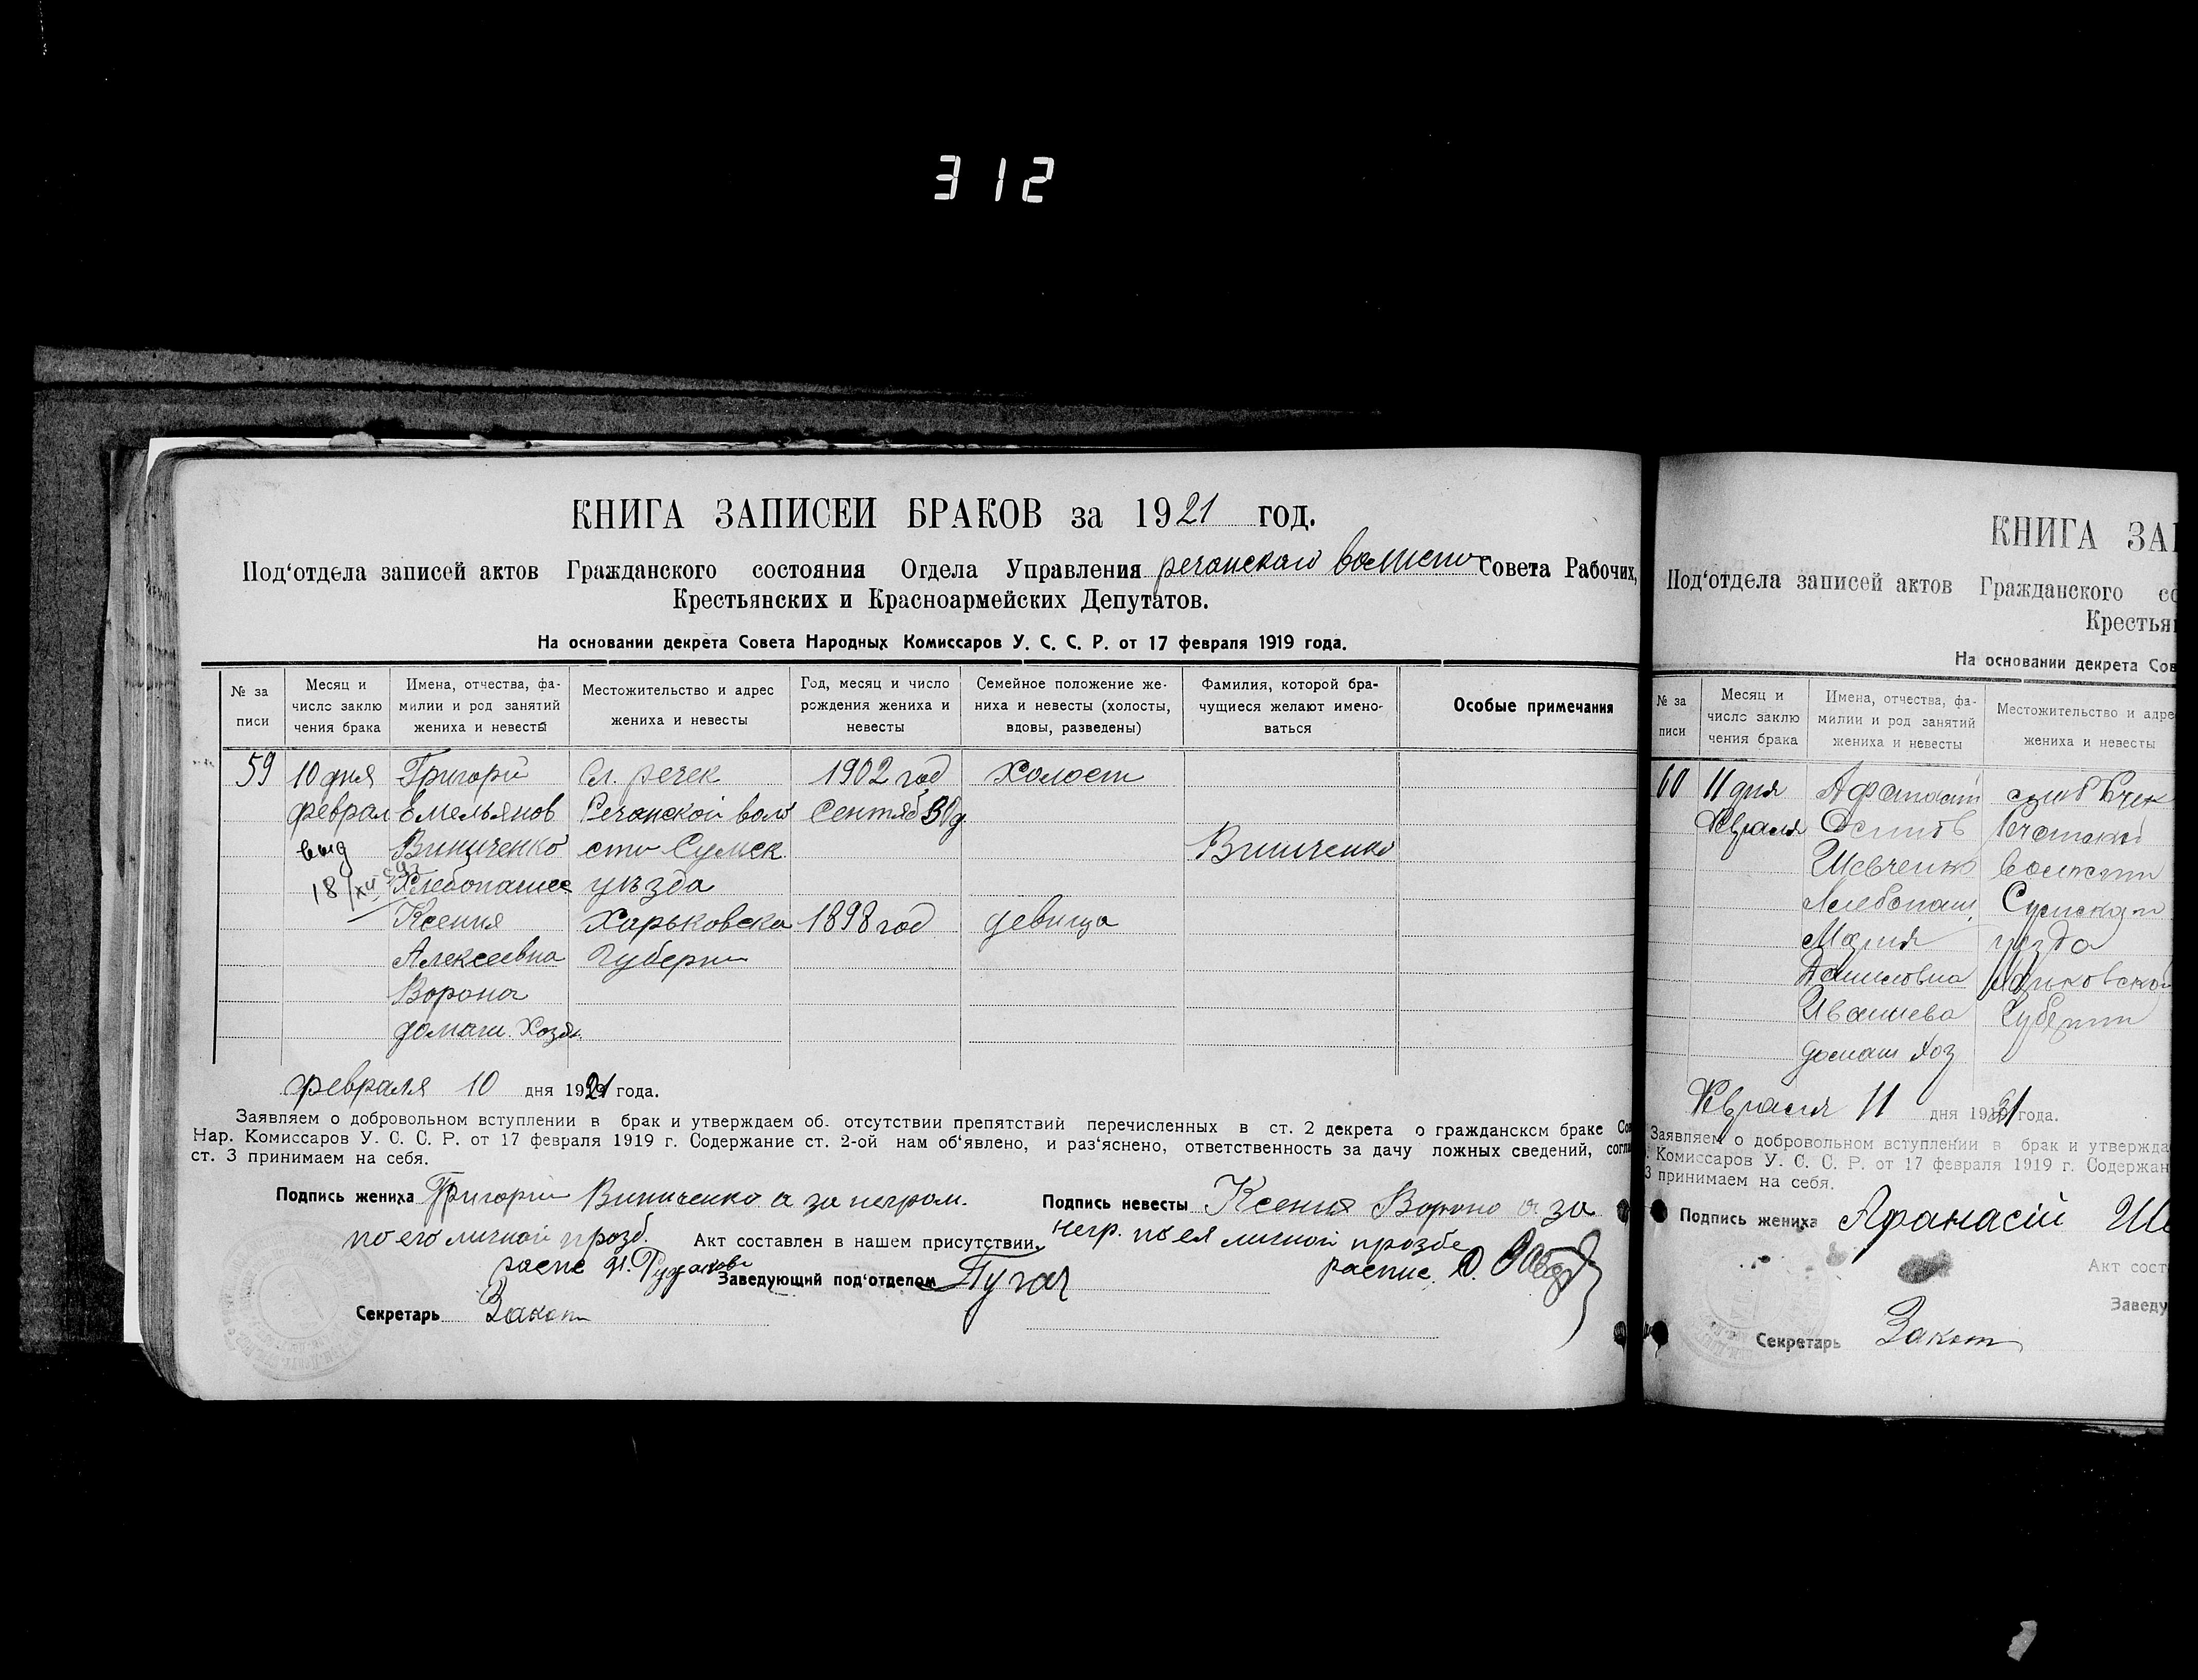 312
КНИГА ЗАПИСЕЙ БРАКОВ за 1921 год.
Под‘отдела записей актов Гражданского состояния Отдела Управления речанского волисто Совета Рабочих,
Крестьянских и Красноармейских Депутатов.
На основании декрета Совета Народных Комиссаров У. С. С. Р. от 17 февраля 1919 года.
№ за писи
Месяц и число заклю чения брака
Имена, отчества, фа- милии и род занятий жениха и невесты
Местожительство и адрес жениха и невесты
Год, месяц и число рождения жениха и невесты
Семейное положение же- ниха и невесты (холосты, вдовы, разведены)
Фамилия, которой бра- чущиеся желают имено- ваться
Особые примечания
59 10 дня Григори Сл. речек 1902 год холост
феврал Емельянов Речанской воло Сентяб 30 д.
выд Виниченко сти Сумск. Виниченко
18/XII Хлебопашес уъзда
Ксения Харьковска 1898 год девица
Алексеевна Губерни
Ворона
домаш. Хозя.
февраля 10 дня 1921 года.
Заявляем о добровольном вступлении в брак и утверждаем об. отсутствии препятствий перечисленных в ст. 2 декрета о гражданском браке Сов
Нар. Комиссаров У. С. С. Р. от 17 февраля 1919 г. Содержание ст. 2-ой нам об‘явлено, и раз‘яснено, ответственность за дачу ложных сведений, согла
ст. 3 принимаем на себя.
Подпись жениха Григории Винниченко а за неграм. Подпись невесты Ксения Вороно а за
по его личной прозб. Акт составлен в нашем присутствии, негр. по ея личной прозбе
распс Заведующий под‘отделом Пугач распис.
Секретарь Закот
КНИГА ЗАП
Под‘отдела записей актов Гражданского со
Крестьян
На основании декрета Сов
№ за писи
Месяц и число заклю чения брака
Имена, отчества, фа- милии и род занятий жениха и невесты
Местожительство и адре жениха и невесты
60 11 дня Афанасий
Февраля Осипов Речанской
Шевченко волости
Хлебопаш. Сумского
Мария уезда
Даниловна Харьковской
Ивашева Губернии
домаш хоз
Февраля 11 дня 1921 года.
Заявляем о добровольном вступлении в брак и утвержда
. Комиссаров У. С. С. Р. от 17 февраля 1919 г. Содержан
3 принимаем на себя.
Подпись жениха Афанасій Ше
Акт сост
Заведу
Секретарь Закот